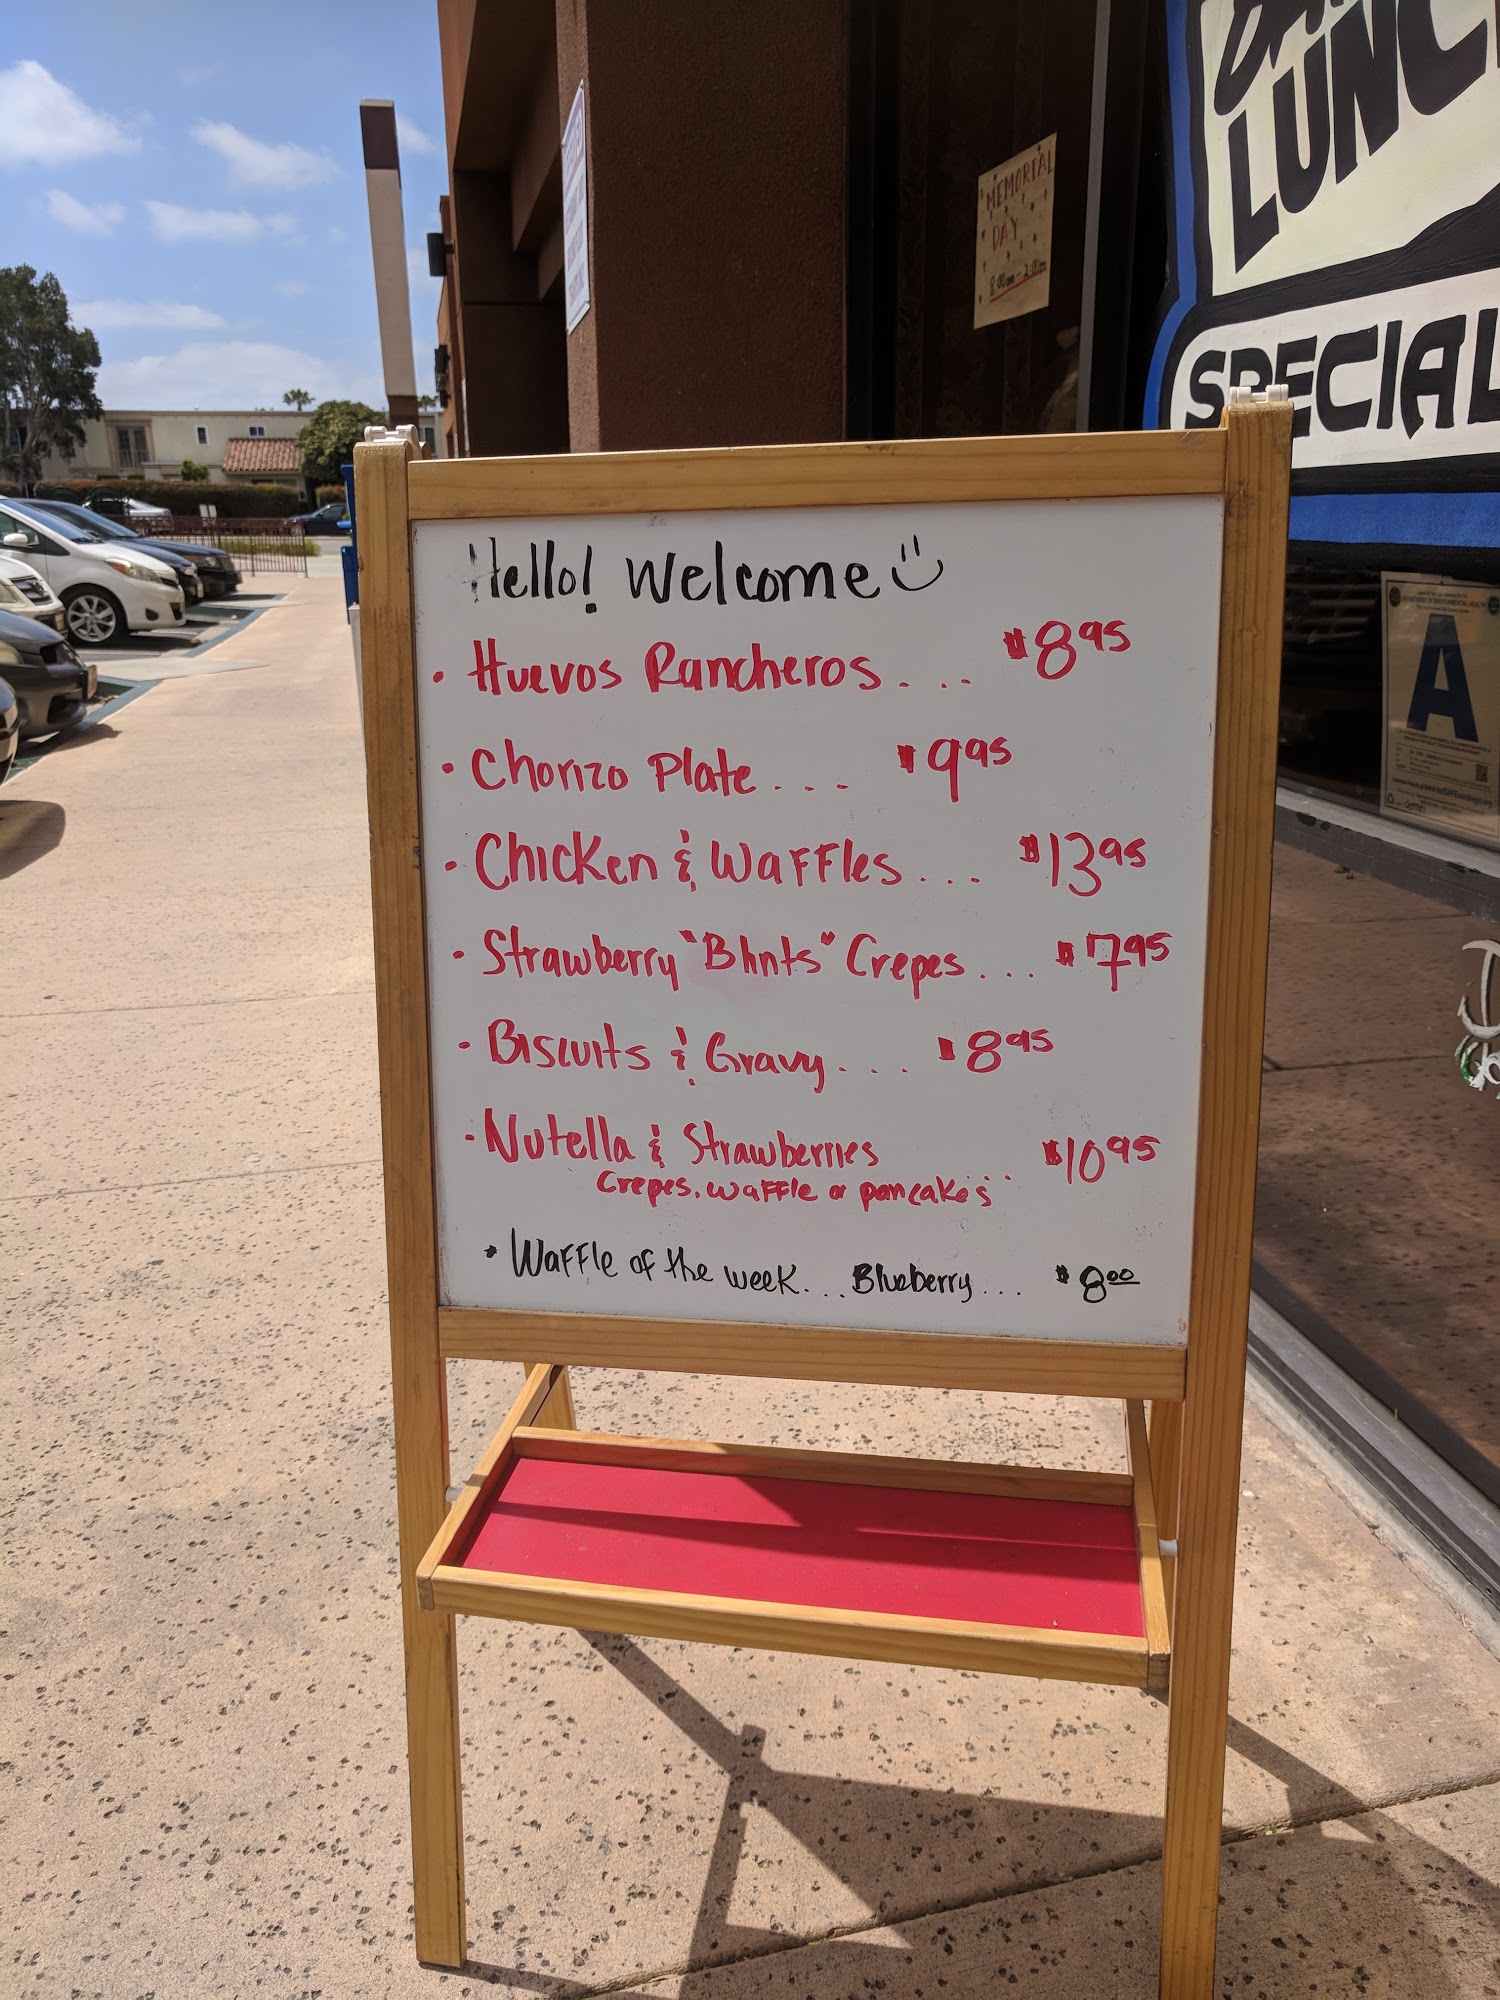 LUNC
SPECIAL
MEMORIAL
DAY
8:00am - 2:00pm
A
Hello! Welcome
· Huevos Rancheros . . . $8 95
· Chorizo Plate . . . $9 95
· Chicken & Waffles . . . $13 95
· Strawberry "Blints" Crepes . . . $7 95
· Biscuits & Gravy . . . $8 95
· Nutella & Strawberries $10 95
Crepes, waffle or pancakes . . .
· Waffle of the week . . . Blueberry . . . $8 00